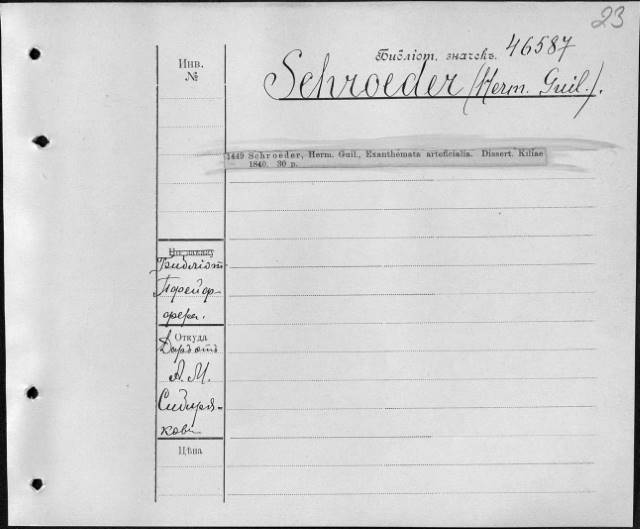 23
Библіот. значекъ. 46587
Инв.
№
Schroeder (Herm. Guil.).
1449 Schroeder, Herm. Guil., Exanthemata arteficialia. Dissert. Kiliae
1840. 30 p.
По заказу
Библіот.
Пфейф-
фера.
Откуда
Даръ отъ
А. М.
Сибиря-
кова
Цѣна